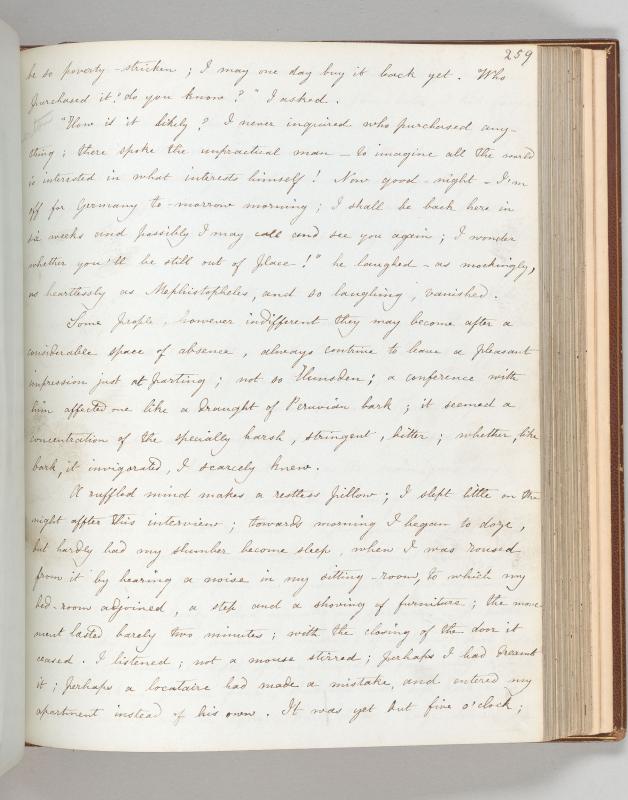 259
be so poverty-stricken ; I may one day buy it back yet . "Who
purchased it? do you know ? " I asked .
"How is it likely ? I never inquired who purchased any-
thing ; there spoke the unpractical man – to imagine all the world
is interested in what interests himself ! Now good-night – I'm
off for Germany to-morrow morning ; I shall be back here in
six weeks and possibly I may call and see you again ; I wonder
whether you'll be still out of place – !" he laughed – as mockingly,
as heartlessly as Mephistopheles, and so laughing, vanished .
Some people , however indifferent they may become after a
considerable space of absence , always contrive to leave a pleasant
impression just at parting ; not so Hunsden ; a conference with
him affected one like a draught of Peruvian bark ; it seemed a
concentration of the specially harsh , stringent , bitter ; whether, like
bark, it invigorated , I scarcely knew .
A ruffled mind makes a restless pillow ; I slept little on the
night affter this interview ; towards morning I began to doze ,
but hardly had my slumber become sleep , when I was roused
from it by hearing a noise in my sitting-room, to which my
bed-room adjoined , a step and a shoving of furniture ; the move-
ment lasted barely two minutes ; with the closing of the door it
ceased . I listened ; not a mouse stirred ; perhaps I had dreamt
it ; perhaps a locataire had made a mistake, and entered my
apartment instead of his own . It was yet but five o'clock ;